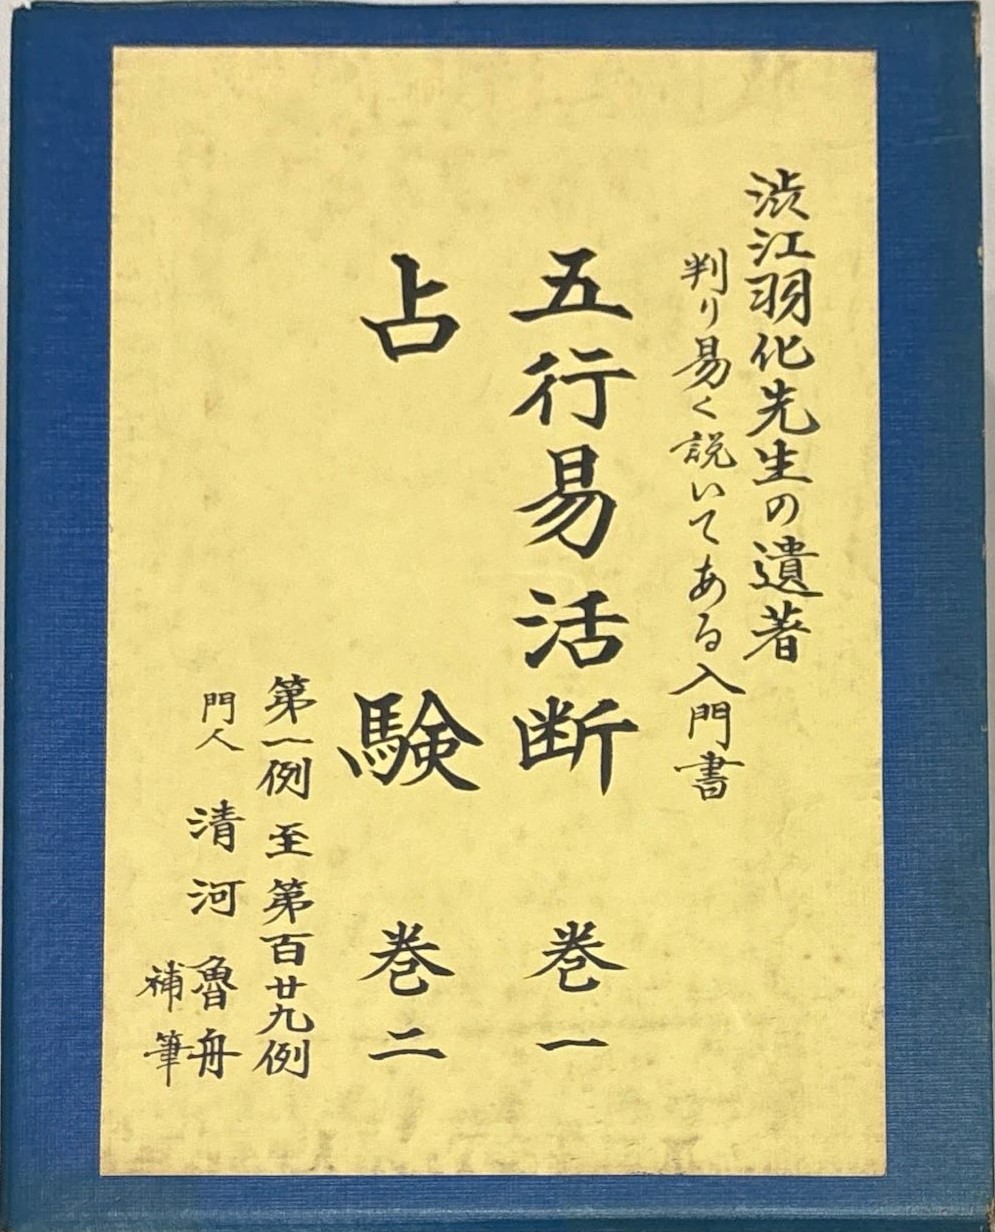 渋江羽化先生の遺著
判り易く説いてある入門書
五行易活断 巻一
占験 巻二
第一例 至 第百廿九例
門人 清河 魯舟
補筆